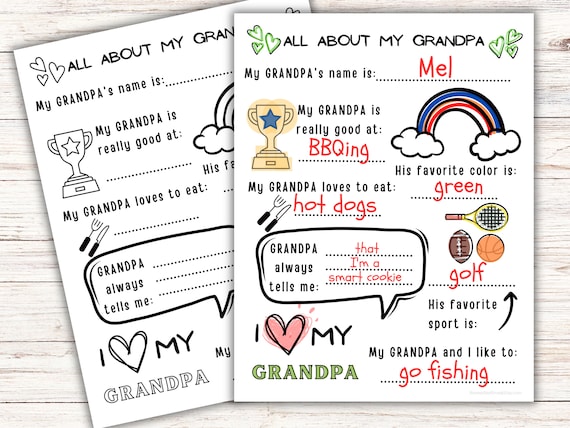 ALL ABOUT MY GRAN
My GRANDPA's name is:
My GRANDPA is
really good at:
His fa
My GRANDPA loves to eat:
GRANDPA
always
tells me:
I MY
GRANDPA
ALL ABOUT MY GRANDPA
My GRANDPA's name is: Mel
My GRANDPA is
really good at:
BBQing
His favorite color is:
green
My GRANDPA loves to eat:
hot dogs
GRANDPA
always
tells me:
that
I'm a
smart cookie
golf
His favorite
sport is:
I MY
GRANDPA
My GRANDPA and I like to:
go fishing